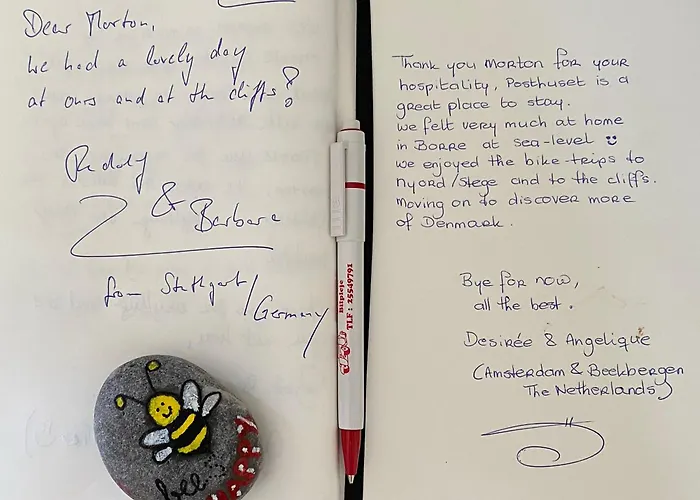 Dear Morton,
we had a lovely day
at ours and at the cliffs!
Rudolf
& Barbara
from Stuttgart/
Germany
bee
HAPPY
Bilpleje
TLF: 25549791
Thank you Morton for your
hospitality, Posthuset is a
great place to stay.
we felt very much at home
in Borre at sea-level
we enjoyed the bike-trips to
Nyord/Stege and to the cliffs.
Moving on to discover more
of Denmark.
Bye for now,
all the best.
Desirée & Angelique
(Amsterdam & Beekbergen
The Netherlands)